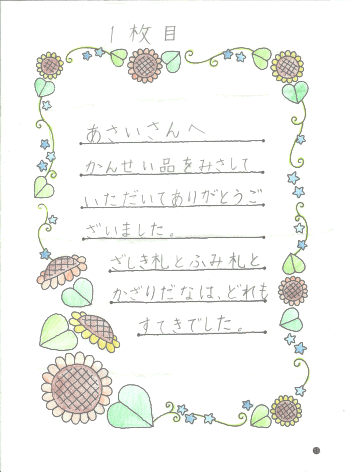 1枚目
あさいさんへ
かんせい品をみさして
いただいてありがとうご
ざいました。
ざしき札とふみ札と
かざりだなは、どれも
すてきでした。